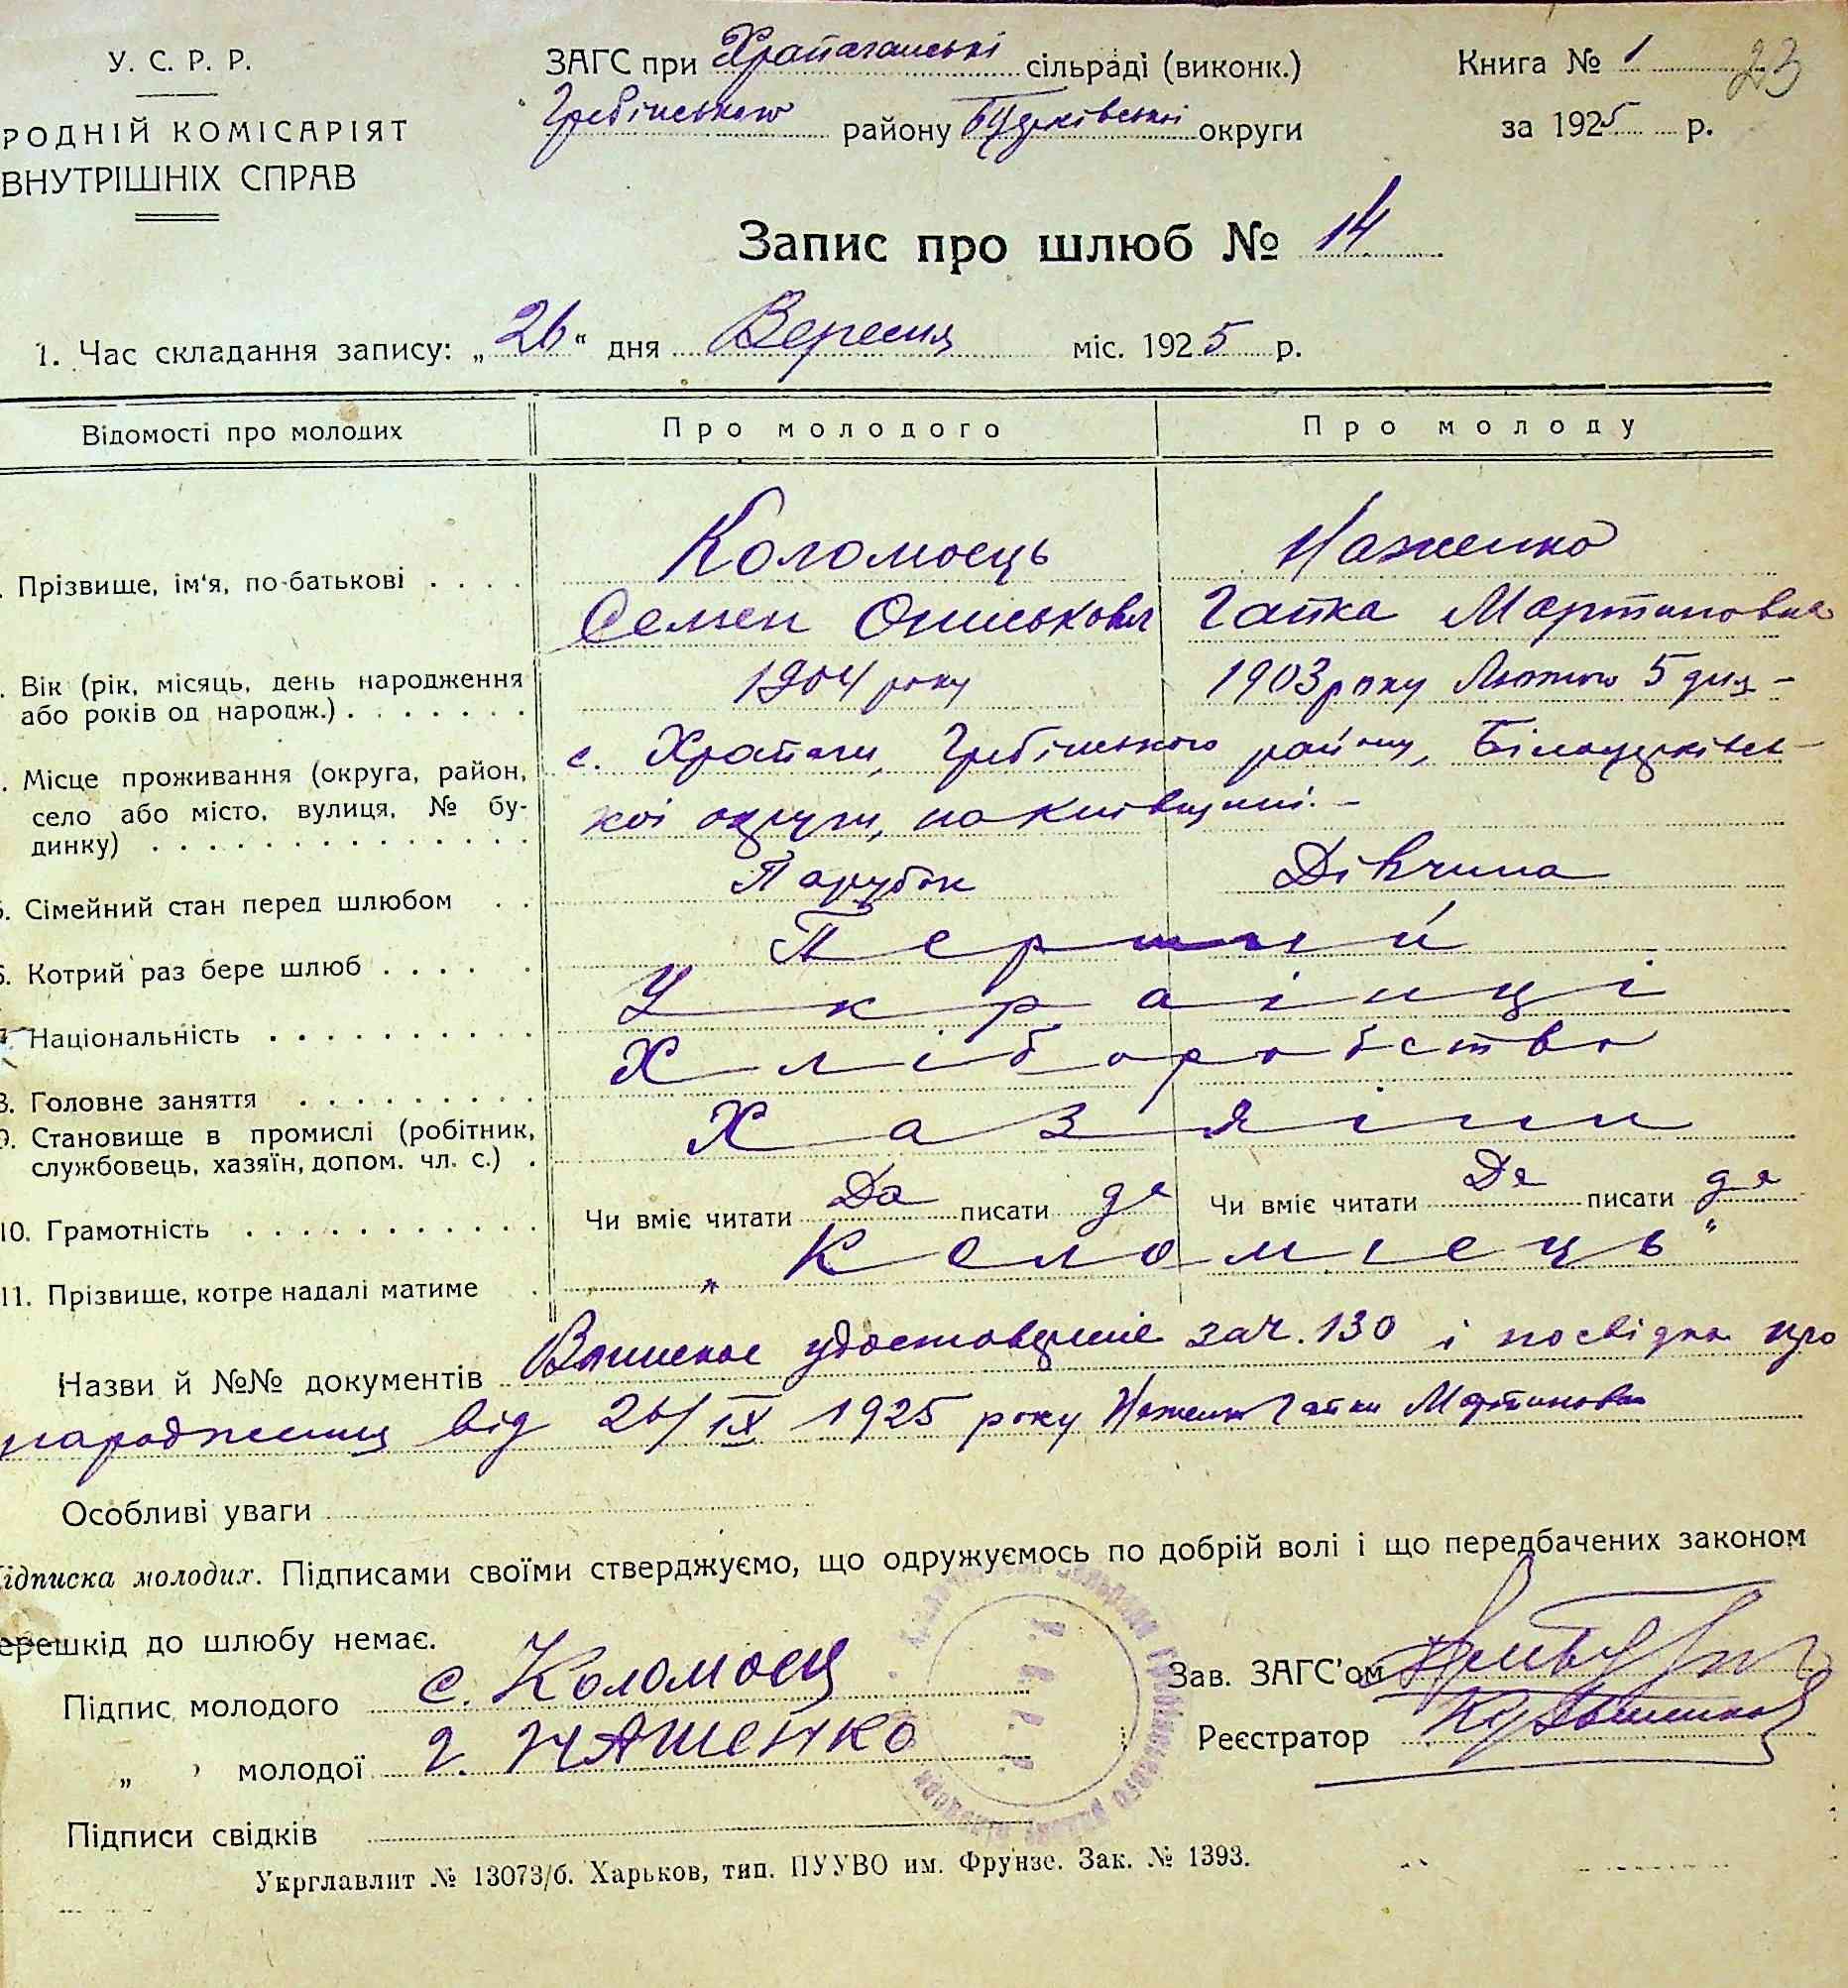 У. С. Р. Р.
РОДНІЙ КОМІСАРІЯТ
ВНУТРІШНІХ СПРАВ
ЗАГС при сільраді (виконк.)
Гребінського району Б.Церківської округи
Книга № 1 23
за 1925 р.
Запис про шлюб № 14
1. Час складання запису: „26“ дня Вересня міс. 1925 р.
Відомості про молодих Про молодого Про молоду
Прізвище, ім'я, по-батькові . . . . Коломоєць Наженко
Семен Ониськович Гапка Мартиновна
Вік (рік, місяць, день народження або років од народж.) . . . . . . . 1904 року 1903 року Лютого 5 дня –
Місце проживання (округа, район, село або місто, вулиця, № будинку) . . . . . . . . . . . . . . с. Храпачи, Гребінського району, Білоцерківсь-
кої округи, на Київщині. –
5. Сімейний стан перед шлюбом . . Парубок Дівчина
6. Котрий раз бере шлюб . . . . . Перший
7. Національність . . . . . . . . . . Українці
8. Головне заняття . . . . . . . . . Хліборобство
9. Становище в промислі (робітник, службовець, хазяїн, допом. чл. с.) . Хазяїни
10. Грамотність . . . . . . . . . . Чи вміє читати Да писати да Чи вміє читати Да писати да
11. Прізвище, котре надалі матиме . „Коломієць“
Назви й №№ документів удостовереніе зач. 130 і посвідка про
народження від 26/IX 1925 року Наженко Гапки Мартиновни
Особливі уваги
ідписка молодих. Підписами своїми стверджуємо, що одружуємось по добрій волі і що передбачених законом
ерешкід до шлюбу немає.
Підпис молодого С. Коломоец
„ молодої Г. НАЖЕНКО
Зав. ЗАГС'ом
Реєстратор
У. С. Р. Р.
Підписи свідків
Укрглавлит № 13073/б. Харьков, тип. ПУУВО им. Фрунзе. Зак. № 1393.